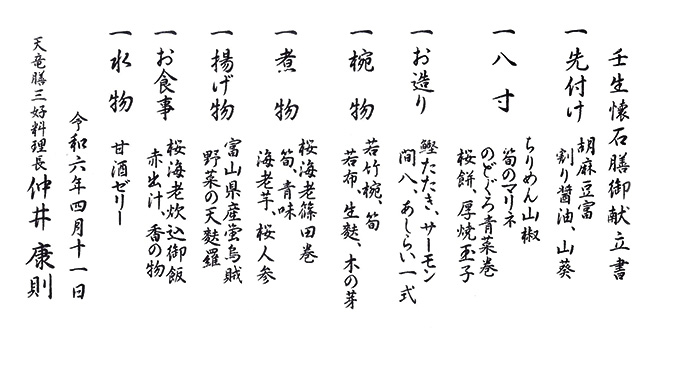 壬生懐石膳御献立書
一 先付け
胡麻豆富
割り醤油、山葵
一 八 寸
ちりめん山椒
筍のマリネ
のどぐろ青菜巻
桜餅、厚焼玉子
一 お造り
鰹たたき、サーモン
間八、あしらい一式
一 椀 物
若竹椀、筍
若布、生麩、木の芽
一 煮 物
桜海老篠田巻
筍、青味
海老芋、桜人参
一 揚げ物
富山県産蛍烏賊
野菜の天麩羅
一 お食事
桜海老炊込御飯
赤出汁、香の物
一 水 物
甘酒ゼリー
令和六年四月十一日
天竜膳三好料理長 仲井 康則